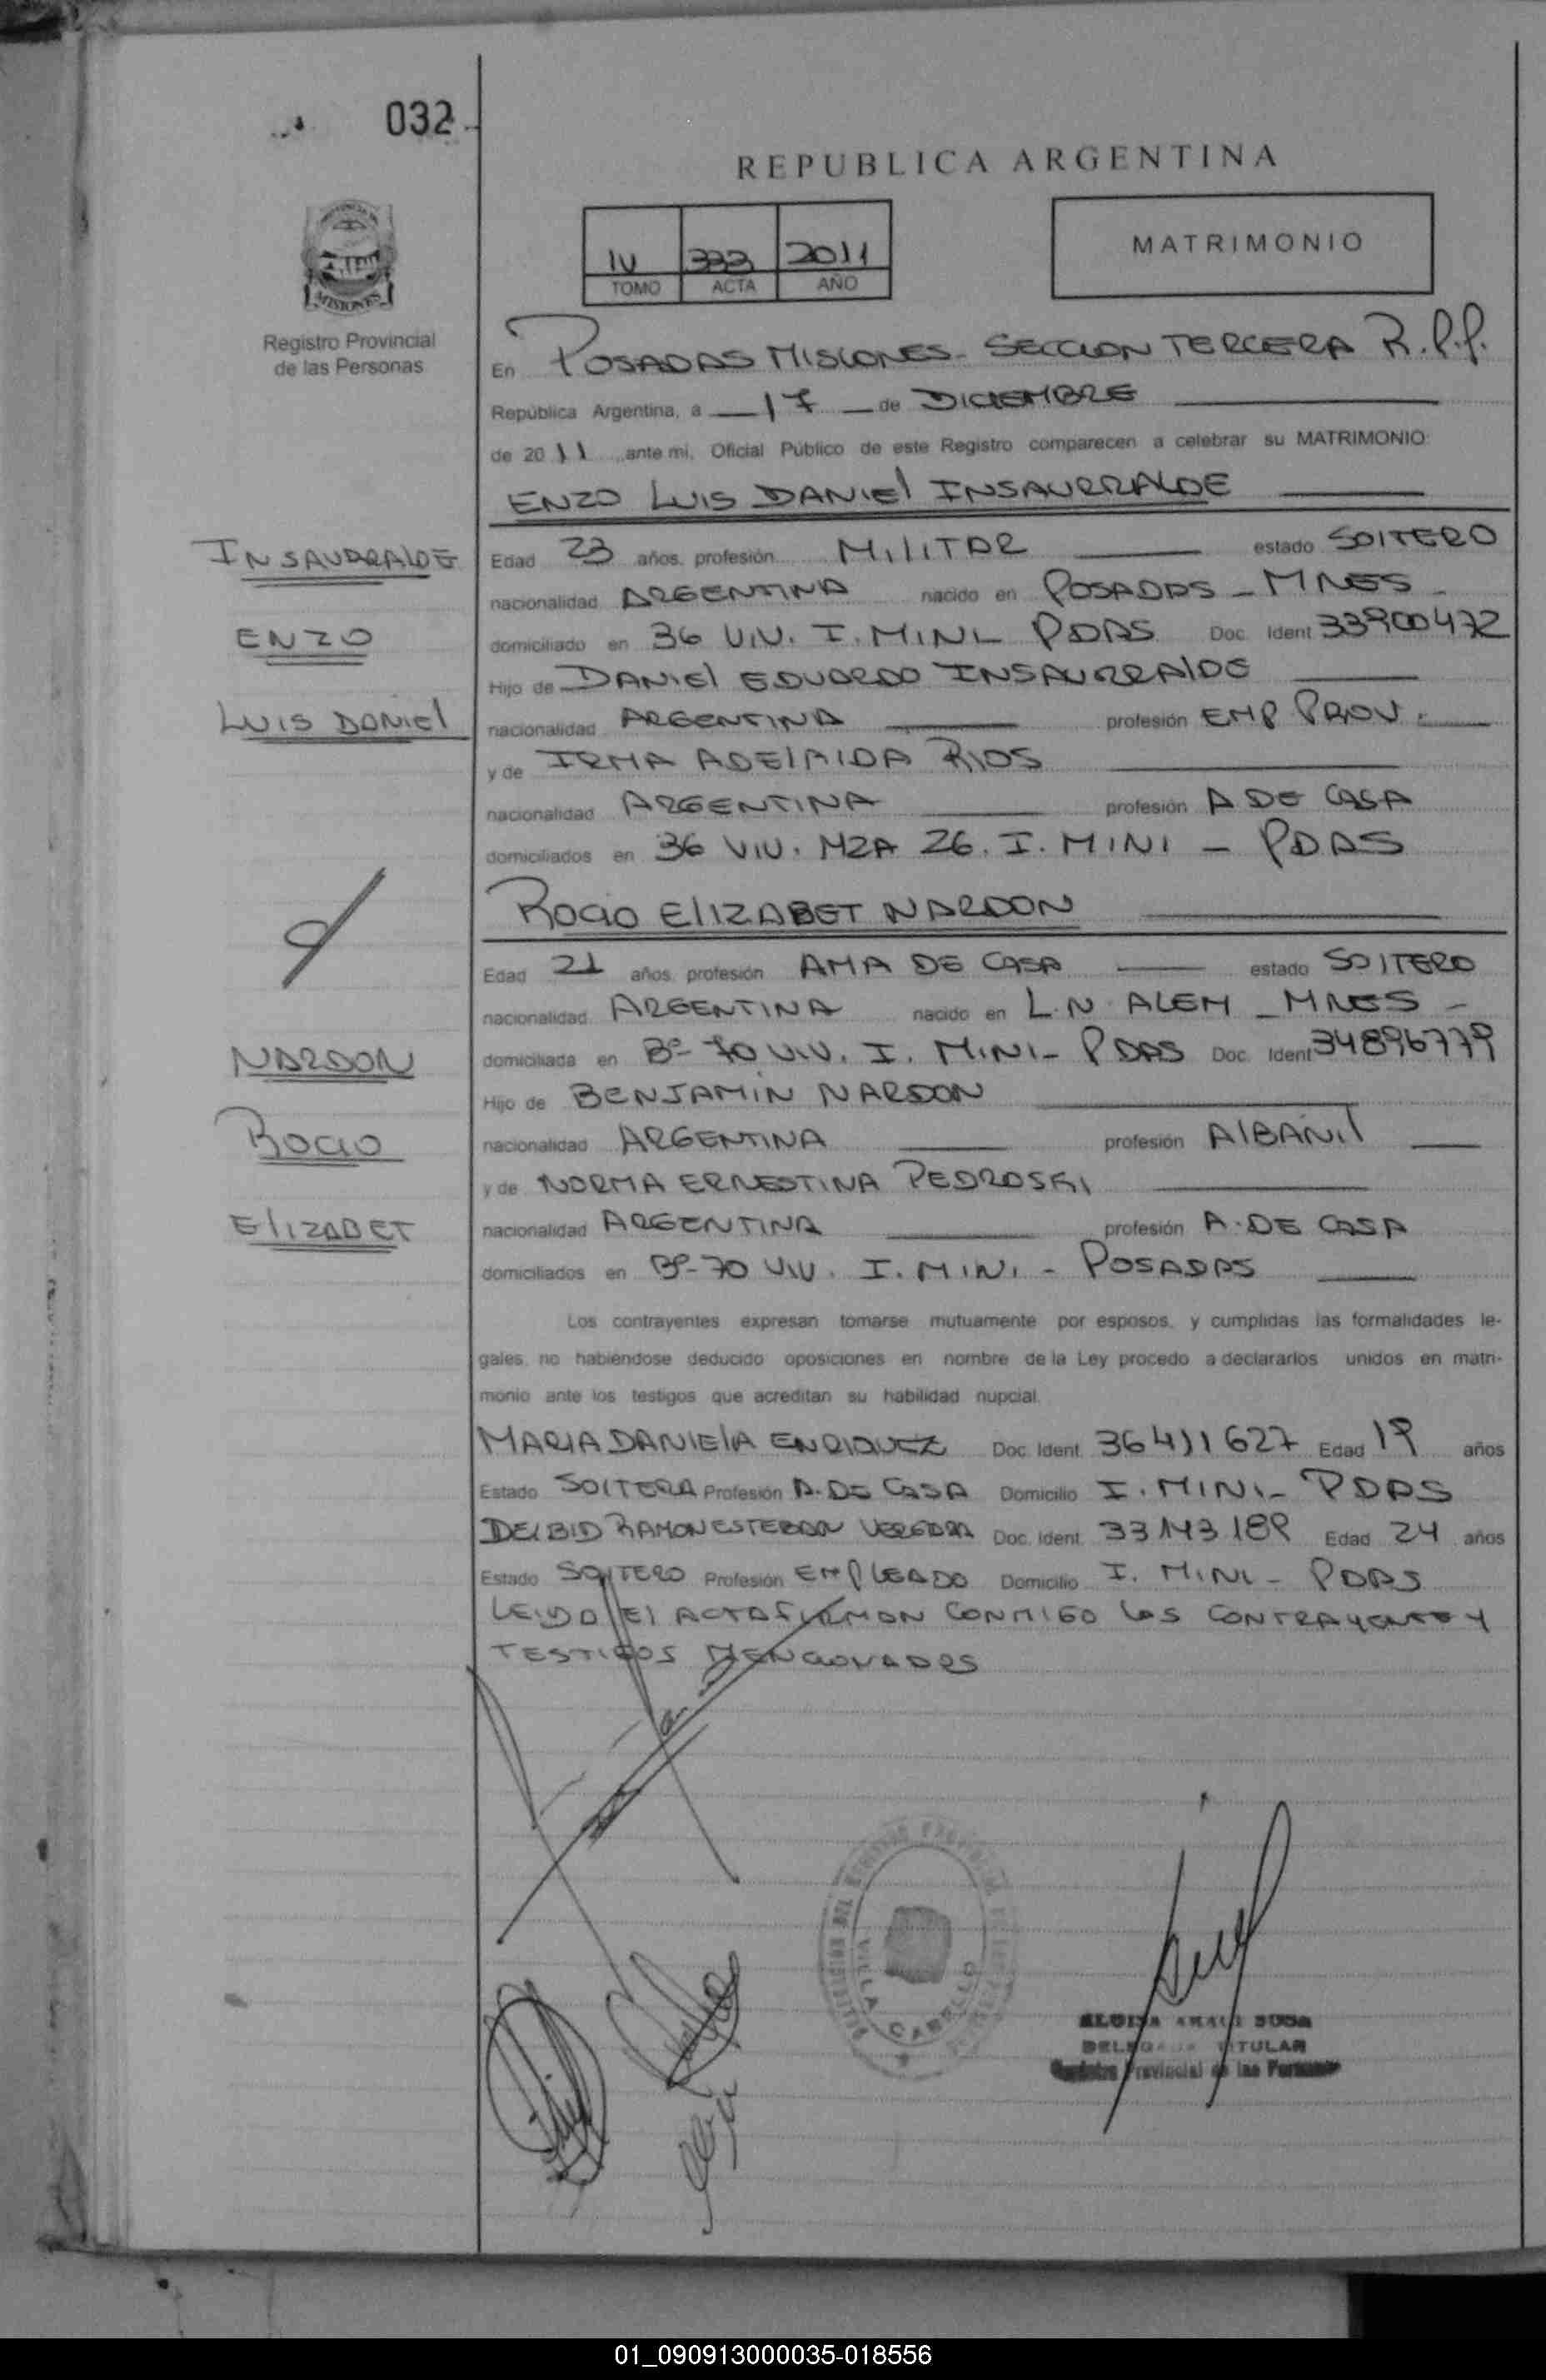 032
REPUBLICA ARGENTINA
MATRIMONIO
IV 333 2011
TOMO ACTA AÑO
MISIONES
Registro Provincial
de las Personas
En POSADAS MISIONES - SECCION TERCERA R.P.P.
República Argentina, a 17 de DICIEMBRE
de 2011 ante mi, Oficial Público de este Registro comparecen a celebrar su MATRIMONIO:
ENZO LUIS DANIEL INSAURRALDE
INSAURRALDE
ENZO
LUIS DANIEL
Edad 23 años, profesión MILITAR estado SOLTERO
nacionalidad ARGENTINA nacido en POSADAS - MNES -
domiciliado en 36 VIV. I. MINI - PDAS Doc. Ident 33900472
Hijo de DANIEL EDUARDO INSAURRALDE
nacionalidad ARGENTINA profesión EMP PROV.
y de IRMA ADELAIDA RIOS
nacionalidad ARGENTINA profesión A DE CASA
domiciliados en 36 VIV. MZA 26. I. MINI - PDAS
ROCIO ELIZABET NARDON
NARDON
ROCIO
ELIZABET
Edad 21 años, profesión AMA DE CASA estado SOLTERO
nacionalidad ARGENTINA nacido en L.N. ALEM - MNES -
domiciliada en Bº- 70 VIV. I. MINI - PDAS Doc. Ident 34896779
Hijo de BENJAMIN NARDON
nacionalidad ARGENTINA profesión ALBAÑIL
y de NORMA ERNESTINA PEDROSKI
nacionalidad ARGENTINA profesión A. DE CASA
domiciliados en Bº-70 VIV. I. MINI - POSADAS
Los contrayentes expresan tomarse mutuamente por esposos, y cumplidas las formalidades le-
gales, no habiéndose deducido oposiciones en nombre de la Ley procedo a declararlos unidos en matri-
monio ante los testigos que acreditan su habilidad nupcial.
MARIA DANIELA ENRIQUEZ Doc. Ident. 36411627 Edad 19 años
Estado SOLTERA Profesión A. DE CASA Domicilio I. MINI - PDAS
DEIBID RAMON ESTEBAN VERGARA Doc. Ident. 33143189 Edad 24 años
Estado SOLTERO Profesión EMPLEADO Domicilio I. MINI - PDAS
LEIDO EL ACTA FIRMAN CONMIGO LOS CONTRAYENTES Y
TESTIGOS MENCIONADOS
VILLA CABELLO
TITULAR
Registro Provincial de las Personas
01_090913000035-018556